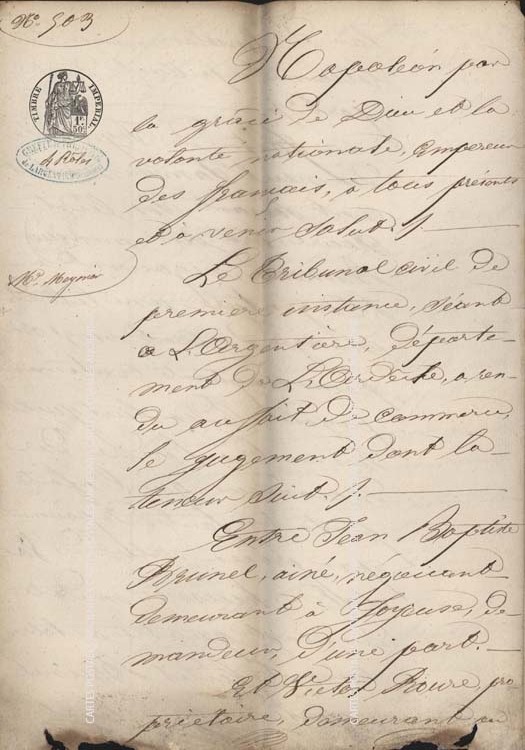 No. 503
Napoléon par
la grâce de Dieu et la
volonté nationale, Empereur
des français, à tous présents
et à venir Salut. /.
TIMBRE IMPERIAL
1F.
50C.
4 Rôles
Me. Meynier
Le Tribunal civil de
première instance, séant
à L'Argentière, départe-
ment de L'Ardèche, a ren-
du au fait de commerce,
le jugement dont la
teneur suit. /.
Entre Jean Baptiste
Brunel, ainé, négociant
demeurant à Joyeuse, de-
mandeur, d'une part. -
Et Victor Roure, pro
priétaire, demeurant au